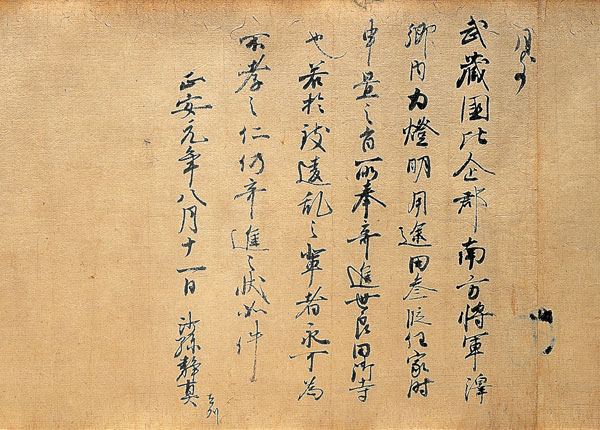 武蔵国比企郡南方将軍澤
郷内力燈明用途田参段任家時
申置之旨所奉寄進世良田御寺
也若於致違乱之輩者永可為
不孝之仁仍寄進之状如件
正安元年八月十一日 沙弥静真